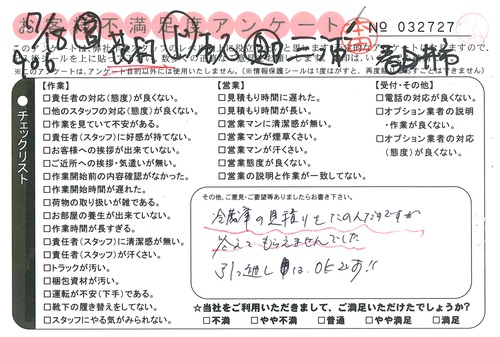 お客様不満足度アンケート
No 032727
チェックリスト
【作業】
□責任者の対応（態度）が良くない。
□他のスタッフの対応（態度）が良くない。
□作業を見ていて不安がある。
□責任者（スタッフ）に好感が持てない。
□お客様への挨拶が出来ていない。
□ご近所への挨拶・気遣いが無い。
□作業開始前の内容確認がなかった。
□作業開始時間が遅れた。
□荷物の取り扱いが雑である。
□お部屋の養生が出来ていない。
□作業時間が長すぎる。
□責任者（スタッフ）に清潔感が無い。
□責任者（スタッフ）が汗くさい。
□トラックが汚い。
□梱包資材が汚い。
□運転が不安（下手）である。
□靴下の履き替えをしてない。
□スタッフにやる気がみられない。
【営業】
□見積もり時間に遅れた。
□見積もり時間が長い。
□営業マンに清潔感が無い。
□営業マンが煙草くさい。
□営業マンが汗くさい。
□営業態度が良くない。
□営業の説明と作業が一致してない。
【受付・その他】
□電話の対応が良くない。
□オプション業者の説明
・作業が良くない。
□オプション業者の対応
（態度）が良くない。
その他、ご意見・ご要望等ありましたらお書き下さい。
冷蔵庫の見積りをたのんだのですが
答えてもらえませんでした
引っ越しはOKです!!
☆当社をご利用いただきまして、ご満足いただけたでしょうか？
□不満 □やや不満 □普通 □やや満足 □満足